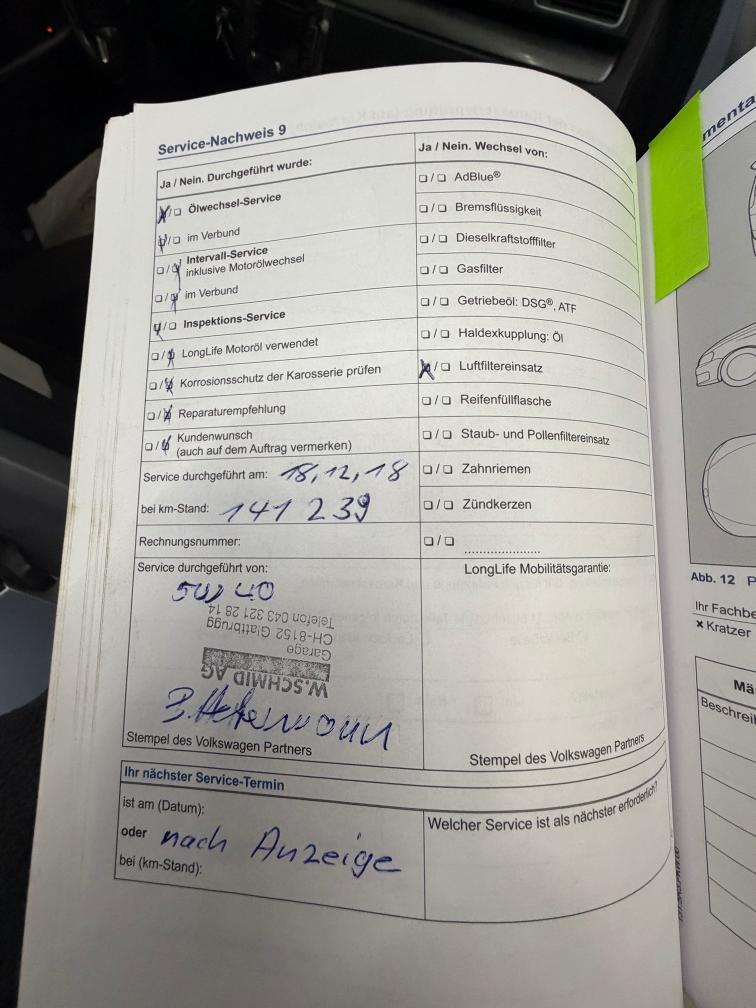 Service-Nachweis 9
Ja / Nein. Durchgeführt wurde:
Ölwechsel-Service
im Verbund
Intervall-Service
inklusive Motorölwechsel
im Verbund
Inspektions-Service
LongLife Motoröl verwendet
Korrosionsschutz der Karosserie prüfen
Reparaturempfehlung
Kundenwunsch
(auch auf dem Auftrag vermerken)
Service durchgeführt am: 18,12,18
bei km-Stand: 141 239
Rechnungsnummer:
Service durchgeführt von:
5W40
W.SCHMID AG
Garage
CH-8152 Glattbrugg
Telefon 043 321 28 14
Stempel des Volkswagen Partners
Ja / Nein. Wechsel von:
AdBlue®
Bremsflüssigkeit
Dieselkraftstofffilter
Gasfilter
Getriebeöl: DSG®, ATF
Haldexkupplung: Öl
Luftfiltereinsatz
Reifenfüllflasche
Staub- und Pollenfiltereinsatz
Zahnriemen
Zündkerzen
LongLife Mobilitätsgarantie:
Stempel des Volkswagen Partners
Ihr nächster Service-Termin
ist am (Datum):
oder nach Anzeige
bei (km-Stand):
Welcher Service ist als nächster erforderlich?
Abb. 12
Ihr Fachbe
× Kratzer
Mä
Beschrei
menta